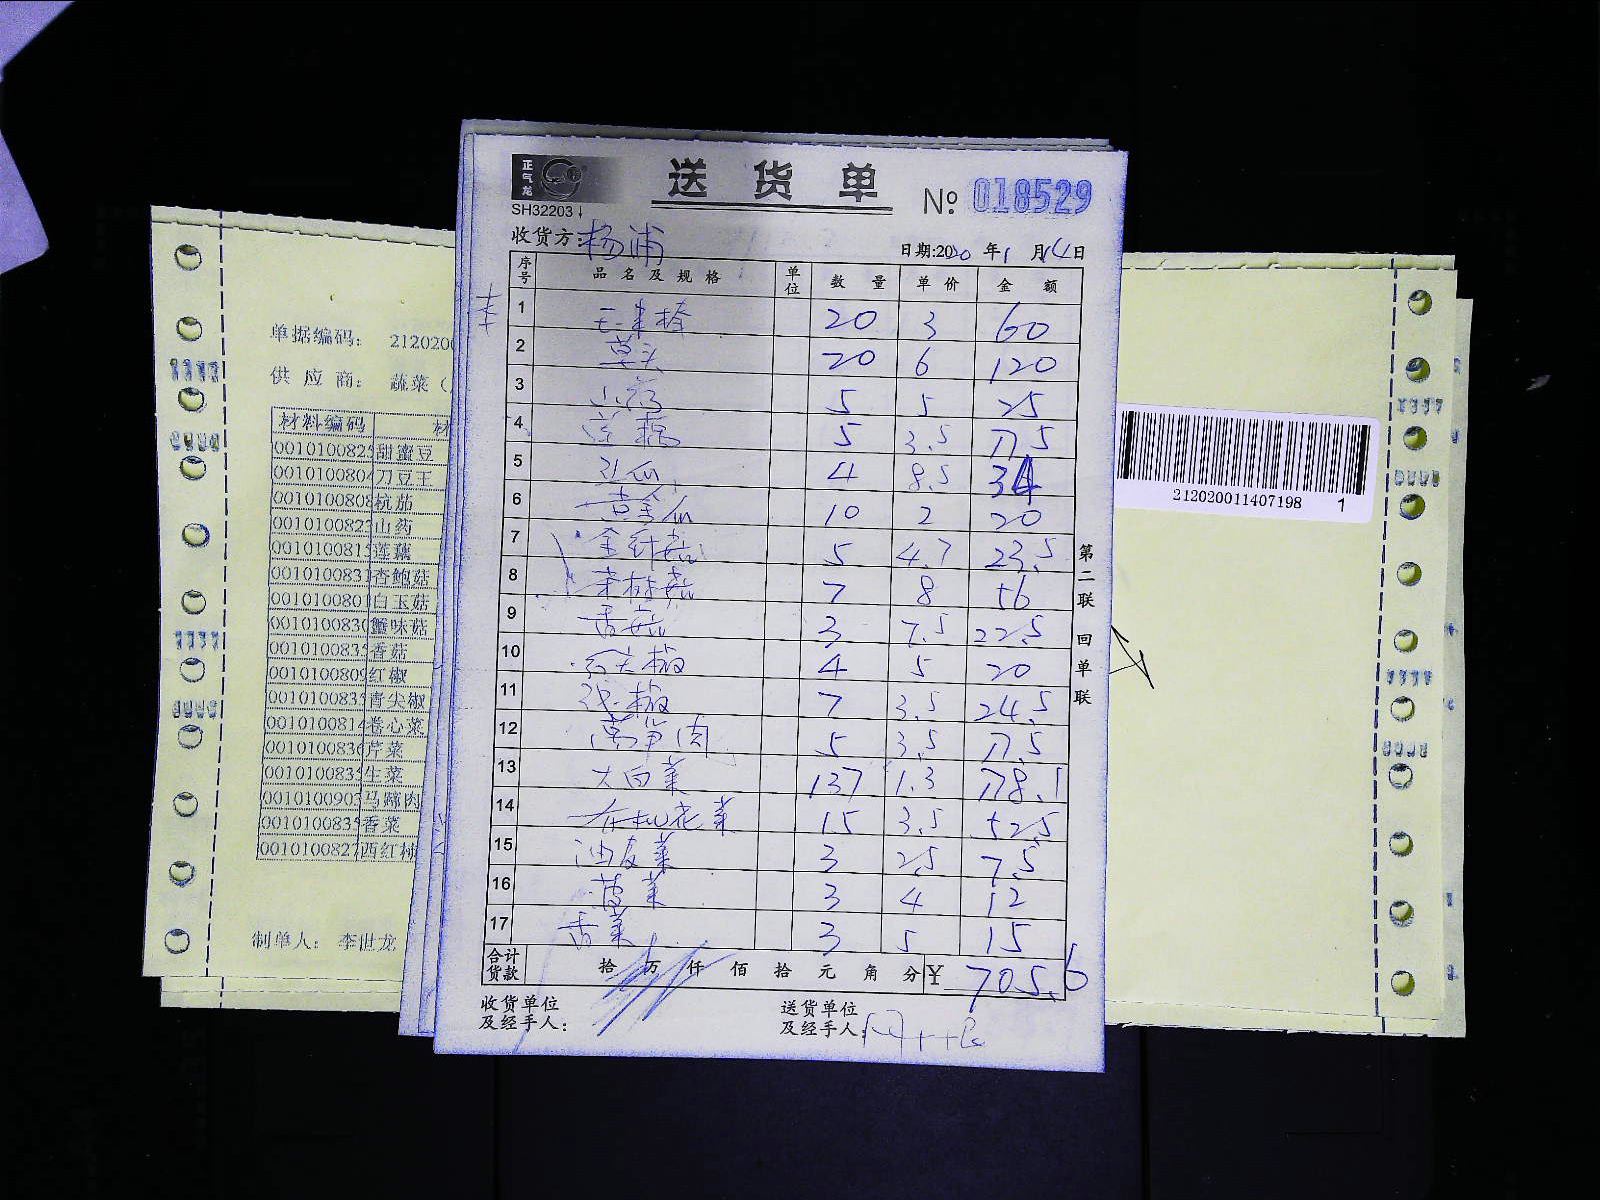 正气龙
送货单
SH32203
№ 018529
收货方:杨浦
日期:2020年1月14日
序号 品名及规格 单位 数量 单价 金额
1 20 3 60
2 草头 20 6 120
3 山药 5 5 25
4 莲藕 5 3.5 17.5
5 4 8.5 34
6 黄金瓜 10 2 20
7 金针菇 5 4.7 23.5
8 茶树菇 7 8 56
9 香菇 3 7.5 22.5
10 红尖椒 4 5 20
11 7 3.5 24.5
12 5 3.5 17.5
13 大白菜 137 1.3 178.1
14 有机花菜 15 3.5 52.5
15 油麦菜 3 2.5 7.5
16 菠菜 3 4 12
17 香菜 3 5 15
合计货款 拾 万 仟 佰 拾 元 角 分 ¥ 705.6
收货单位及经手人:
送货单位及经手人:
第二联 回单联
单据编码: 2120200
供应商: 蔬菜(
材料编码 材
0010100825 甜蜜豆
0010100804 刀豆王
0010100808 杭茄
0010100823 山药
0010100815 莲藕
0010100831 杏鲍菇
0010100801 白玉菇
0010100830 蟹味菇
0010100833 香菇
0010100809 红椒
0010100835 青尖椒
0010100814 卷心菜
0010100836 芹菜
0010100835 生菜
0010100903 马蹄肉
0010100835 香菜
0010100827 西红柿
制单人: 李世龙
212020011407198 1